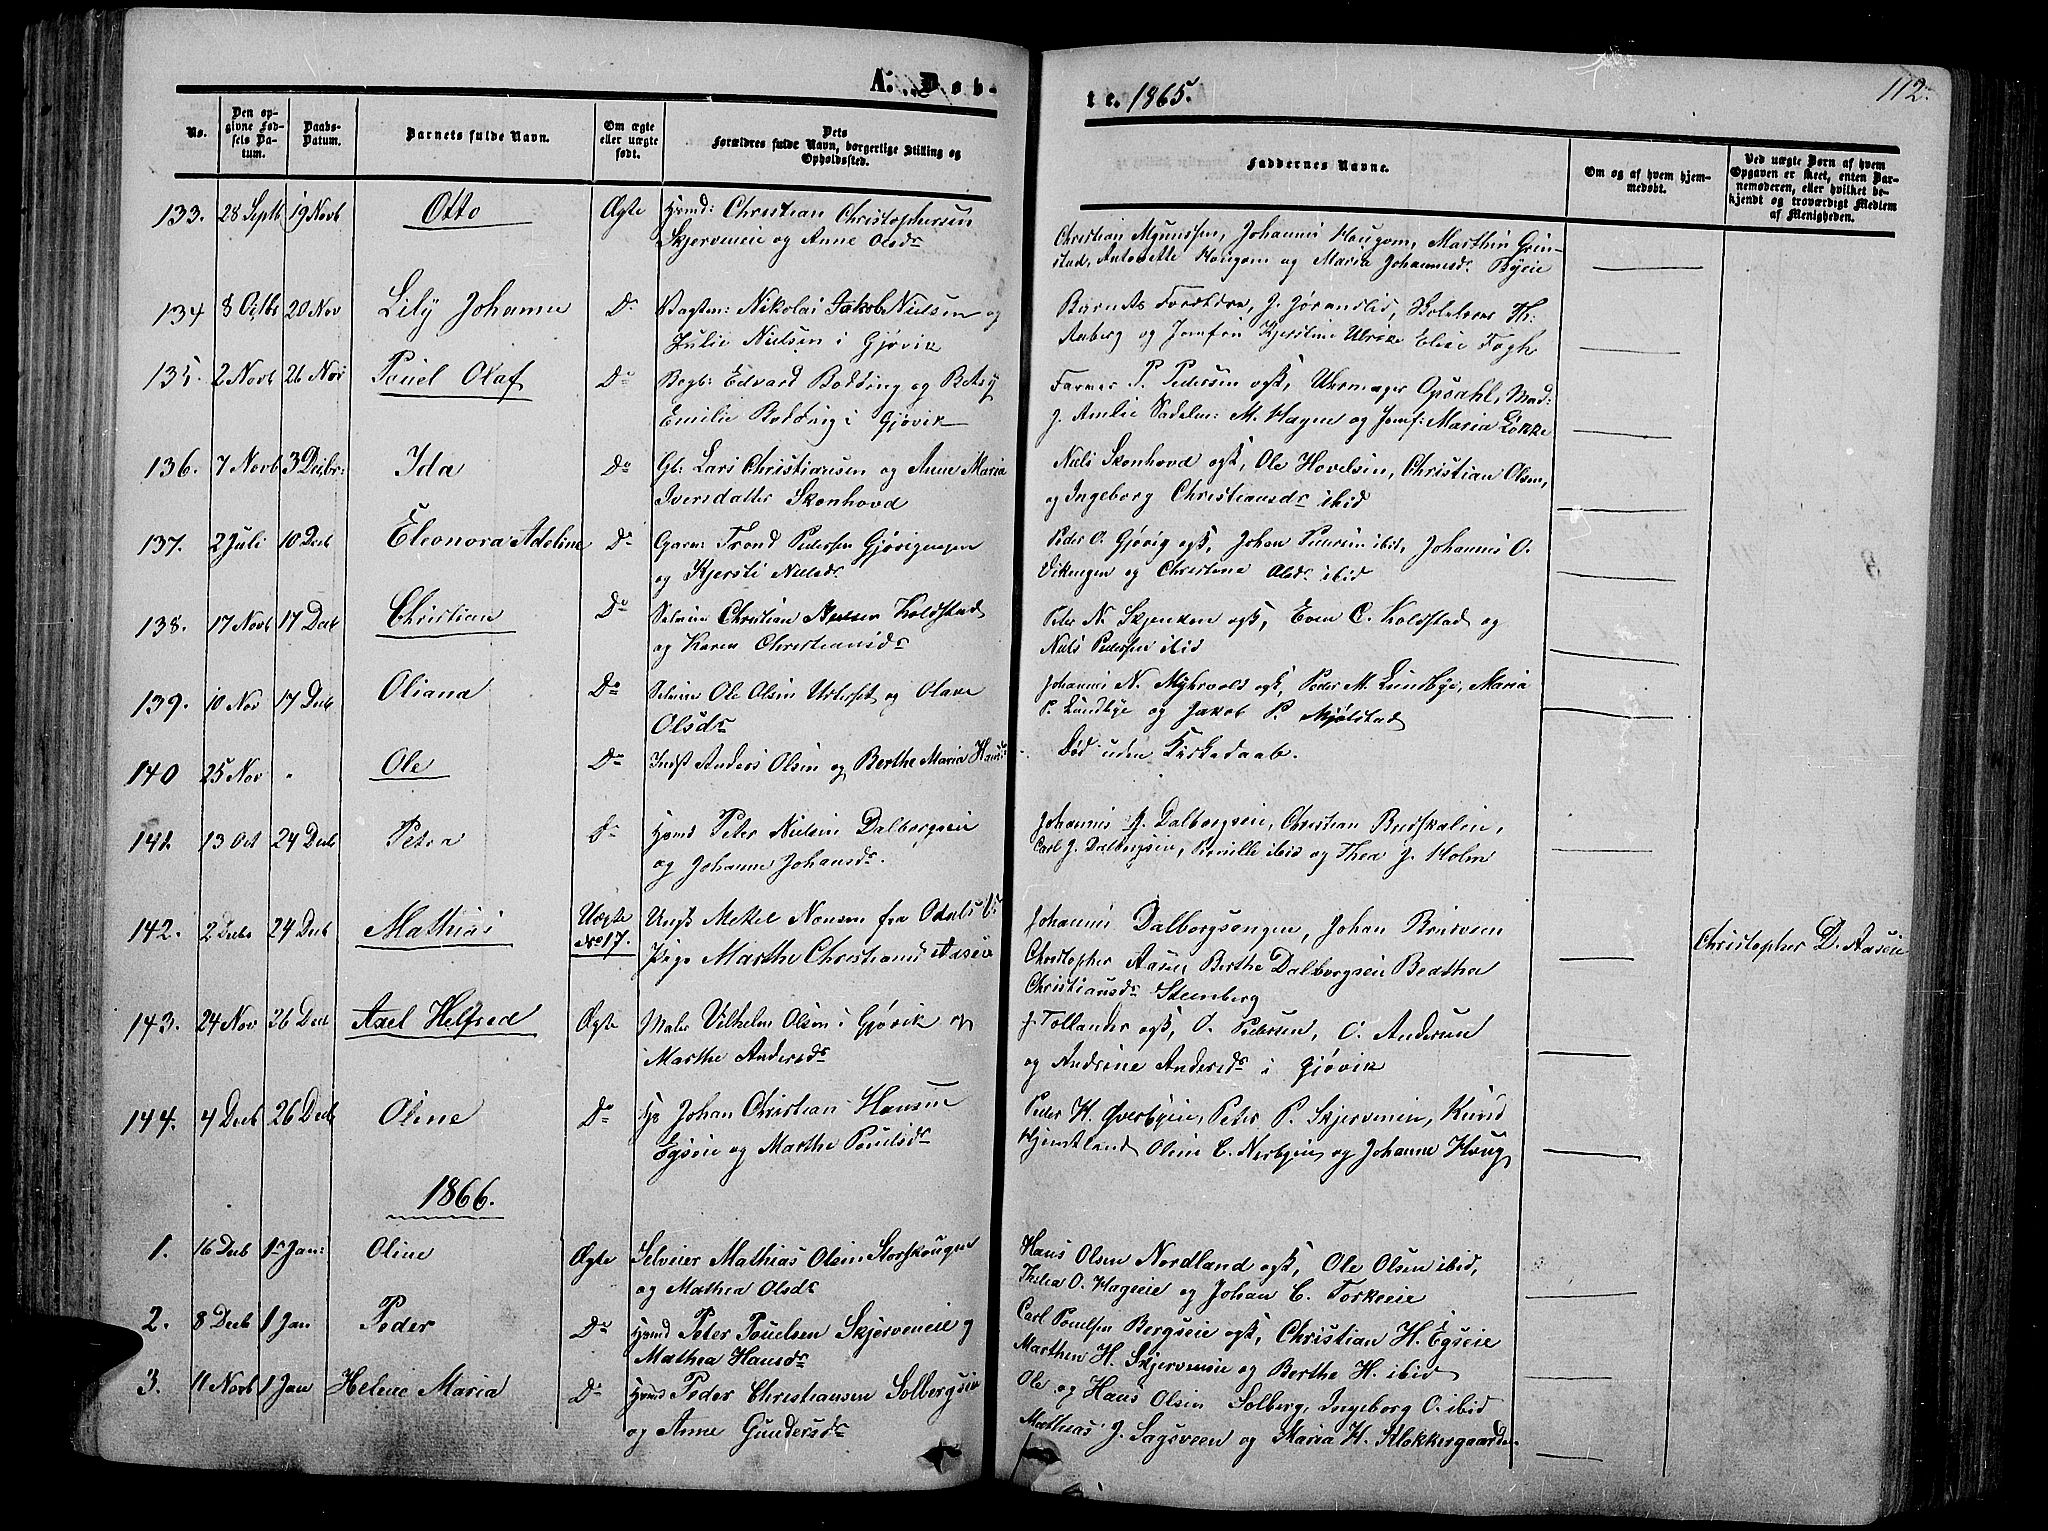 A. Døb-
te. 1865.
112.
No.
Den opgivne Fødsels Datum.
Daabs-Datum.
Barnets fulde Navn.
Om ægte eller uægte født.
Dets Forældres fulde Navn, borgerlige Stilling og Opholdssted.
Faddernes Navne.
Om og af hvem hjemmedøbt.
Ved uægte Børn af hvem Opgaven er skeet, enten Barnemoderen, eller hvilket bekjendt og troværdigt Medlem af Menigheden.
133. 28 Septb 19 Novb Otto Ægte Hsmd: Christian Christophersen
Skjerveneie og Anne Olsdr
Christian Johannes Haugom, Marthin Grin-
stad, Antonette Haugom og Maria Johannesdr Byeie
134 8 Octbr 20 Nov Lily Johanne Do Nikolai Jakob Nielsen og
Julie Nielsen i Gjøvik
Barnets Forældre, J. Jørandlid, H.
Aaberg og Jomfru Kjerstine Ulrike Elise Fogh
135. 2 Novb 26 Nov Pouel Olaf Do Bogb: Edvard Bødtring og Betsy
Emilie i Gjøvik
Farver P. Pedersen ogsk, Uhrmager Opsahl, Mad:
J. Amlie Sadelm: M. Hagne og Jomf: Maria Løkke
136. 7 Novb 3 Decbr: Ida Do Gb: Lars Christiansen og Anne Maria
Iversdatter Skonhovd
Niels Skonhovd ogsk, Ole Hovelsen, Christian Olsen,
og Ingeborg Christiansdr ibid
137. 2 Juli 10 Decb Eleonora Adeline Do Trond Pedersen Gjøvigengen
og Kjersti Nielsdr
Peder O. Gjøvig ogsk, Johan ibid, Johannes O.
Vikengen og Christine Olsdr ibid
138. 17 Novb 17 Decb Christian Do Selveier Christian Koldstad
og Karen Christiansdr
Peter N. Skjenken ogsk, Even C. Koldstad og
Niels Pedersen ibid
139. 10 Nov 17 Decb Oliana Do Selveier Ole Olsen og Olave
Olsdr
Johannes N. Myhrvold ogsk, Peder M. Lundbye, Maria
P. Lundbye og Jakob P. Mjølstad
140 25 Nov " Ole Do Indst Anders Olsen og Berthe Maria Hansd
Død uden Kirkedaab.
141 13 Oct 24 Decb Petra Do Hsmd Peter Nielsen Dalborgseie
og Johanne Johansdr.
Johannes J. Dalborgseie, Christian Bredskalen,
Carl J. Dalborgseie, Pernille ibid og Thea J. Holm
142. 2 Decbr 24 Decb Mathias Uægte
No 17. Ungk Mekel fra Odals
Pige Marthe Christiansd Aaseie
Johannes Dalborgsengen, Johan Brusveen
Christopher Berthe Dalborgseie Beathea
Christiansdr Stemberg
Christopher D. Aaseie
143. 24 Nov 26 Decb Axel Helfred Ægte Maler Vilhelm Olsen i Gjøvik og
Marthe Andersdr
J. Tollander ogsk, O. Pedersen, C. Andersen
og Andrine Andersdr i Gjøvik
144. 4 Decb 26 Decb Oline Do Johan Christian Hansen
Egseie og Marthe Pouelsdr
Peder H. Øverbyeie, Peter P. Skjerveneie, Knud
Hjemtland Oline C. Nerbyeie og Johanne Haug
1866.
1. 16 Decb 1 Jan: Oline Ægte Selveier Mathias Olsen Storskougen
og Mathea Olsdr
Hans Olsen Nordland ogsk, Ole Olsen ibid,
Thea O. Hageeie og Johan C. Torkeeie
2. 8 Decb 1 Jan Peder Do Hsmd Peter Pouelsen Skjerveneie og
Mathea Hansdr
Carl Pouelsen Bergseie ogsk, Christian H. Egseie
Marthea H. Skjerveneie og Berthe H. ibid
3. 11 Novb 1 Jan Helene Maria Do Hsmd Peder Christiansen Solbergseie
og Anne Gundersdr
Ole og Hans Olsen Solberg, Ingeborg O. ibid
Mathias J. Sagsveen og Maria H. Klokkergaarden